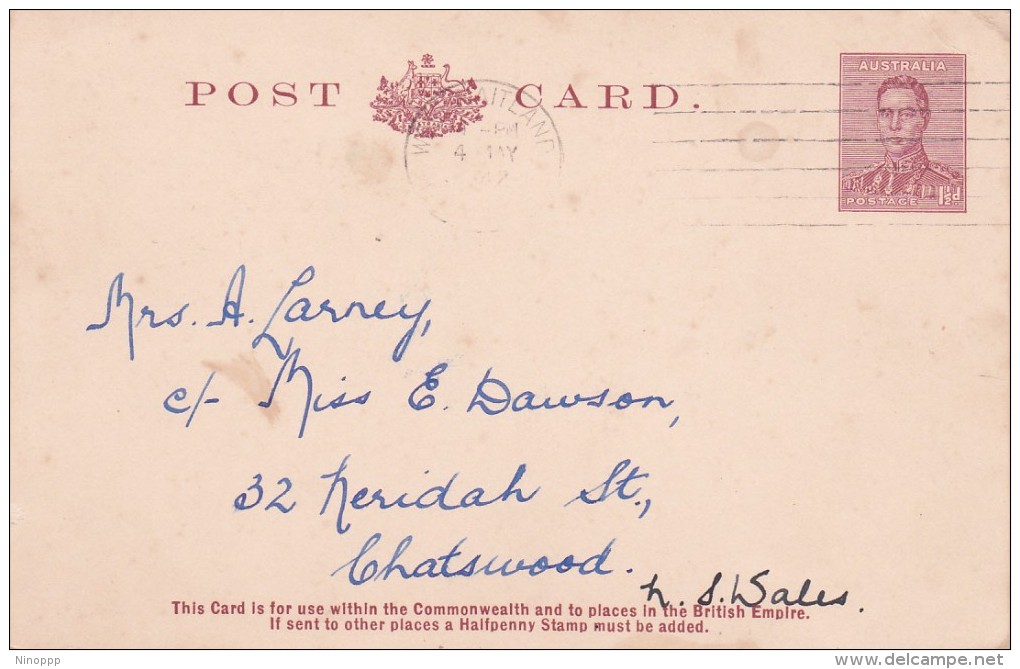 AUSTRALIA
POST CARD.
MAITLAND
-PM
4 MY
POSTAGE 1½d.
Mrs. A. Larney,
c/- Miss E. Dawson,
32 Neridah St.,
Chatswood.
N. S. Wales.
This Card is for use within the Commonwealth and to places in the British Empire.
If sent to other places a Halfpenny Stamp must be added.
Ninoppp
delcampe.net